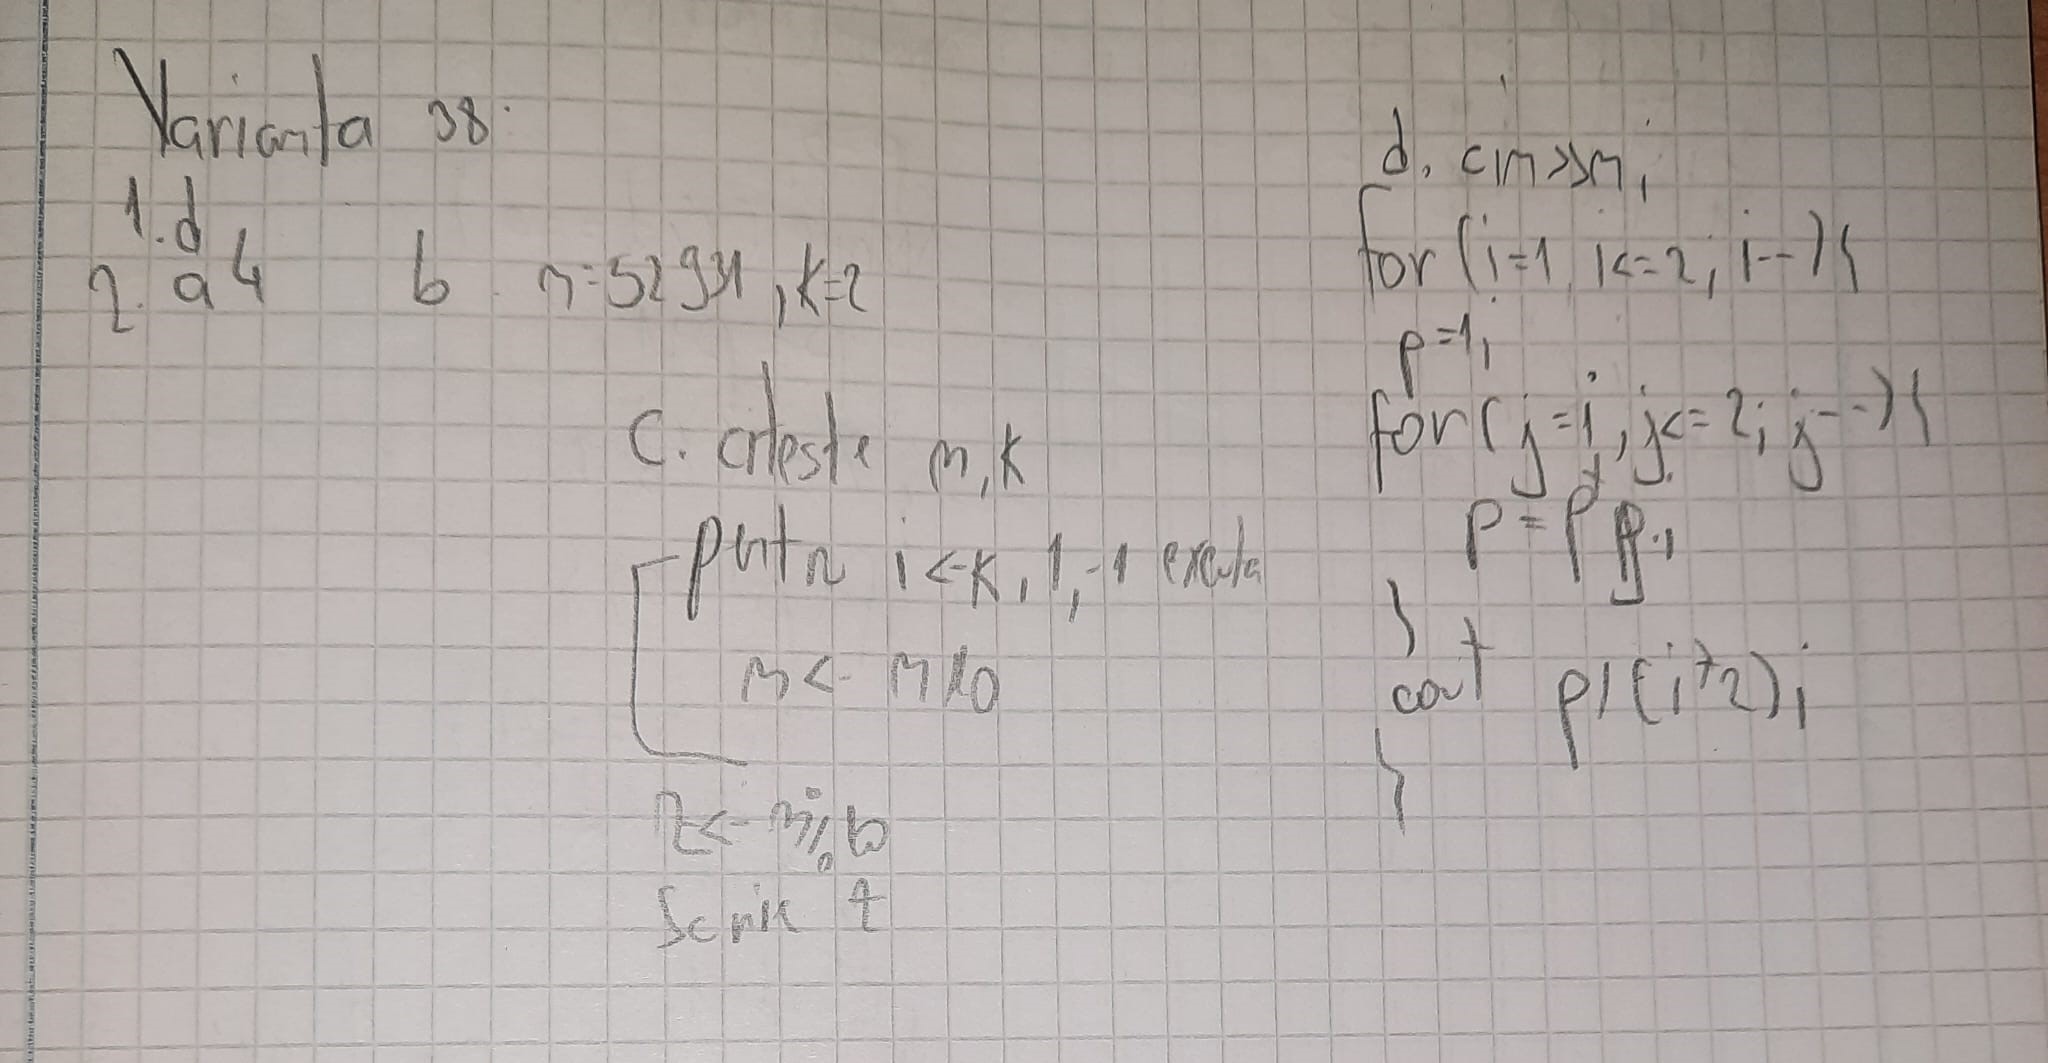 Varianta 38.
1. d
2. a 4 b n=52931, k=2
c. citeste n,k
pntr i<-k,1,-1 executa
n<- n/10
z<- n%10
Scrie z
d. cin>>n;
for(i=1, i<=2; i--){
p=1;
for(j=i, j<=2; j--){
p=p*
}
cout p/(i+2);
}